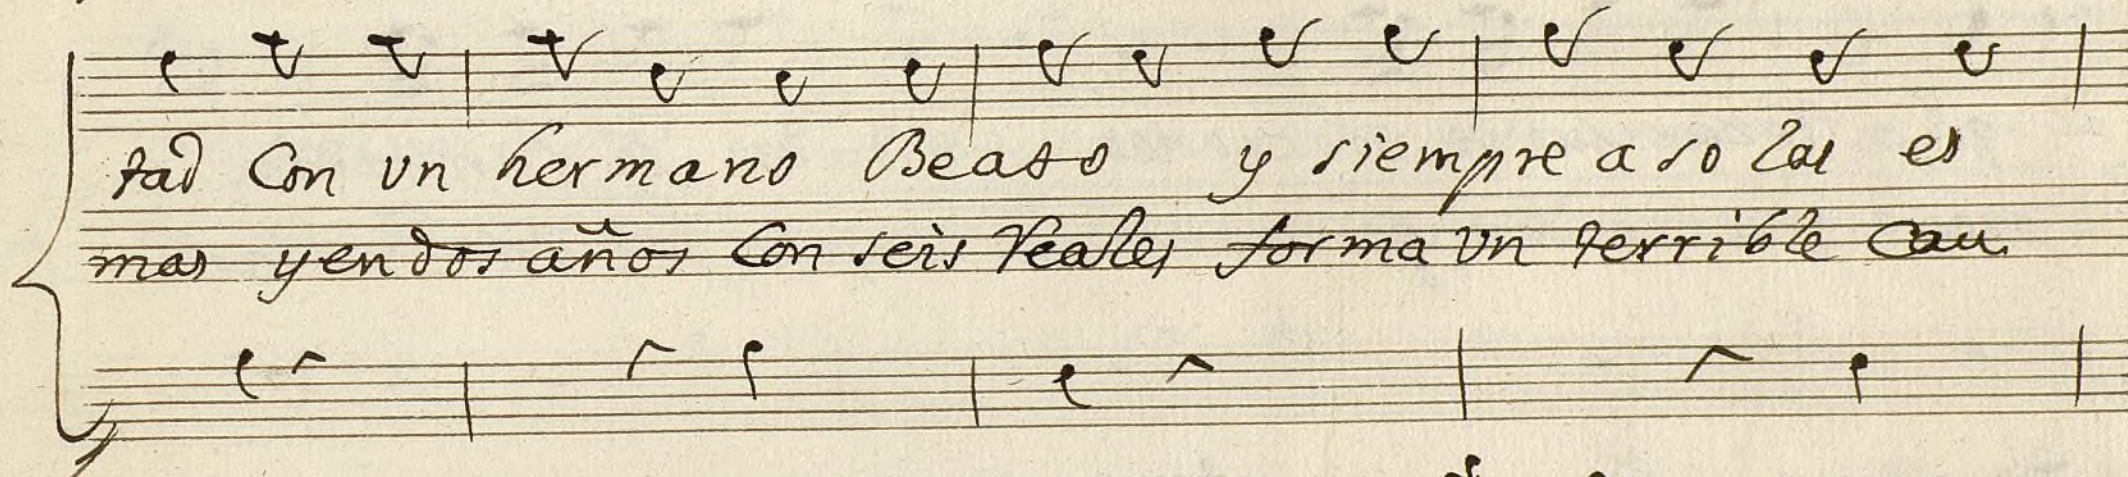 tad Con un hermano Beato y siempre a so las es
mas yendos años Con seis Reales forma un terrible Cau